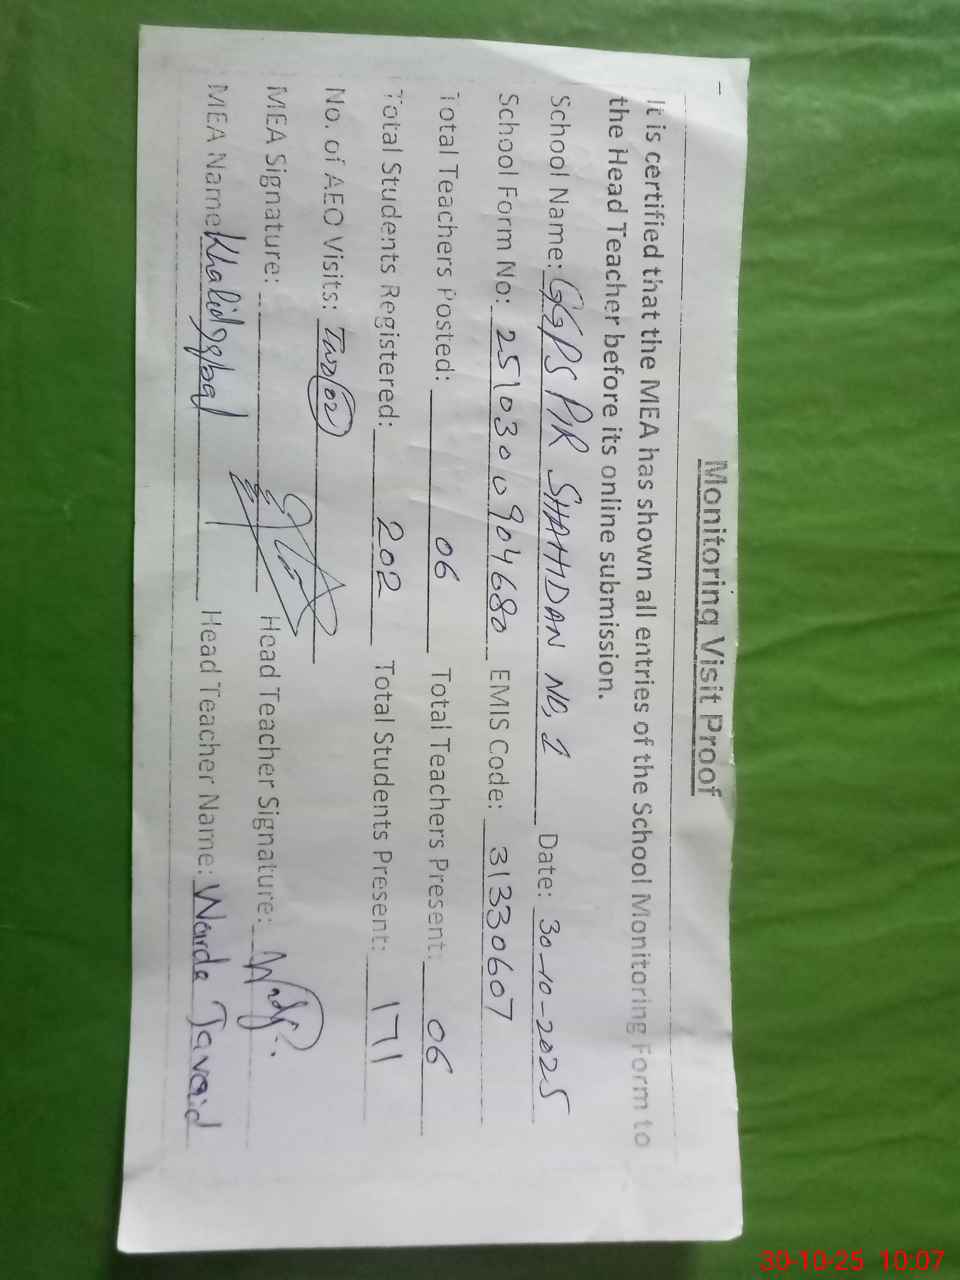 Monitoring Visit Proof
It is certified that the MEA has shown all entries of the School Monitoring Form to
the Head Teacher before its online submission.
School Name: GGPS PIR SHAHIDAN NO, 1 Date: 30-10-2025
School Form No: 2510300904680 EMIS Code: 31330607
Total Teachers Posted: 06 Total Teachers Present: 06
Total Students Registered: 202 Total Students Present: 171
No. of AEO Visits: Two (02)
MEA Signature: Head Teacher Signature:
MEA Name: Khalid Iqbal Head Teacher Name: Warda Javaid
30-10-25 10:07